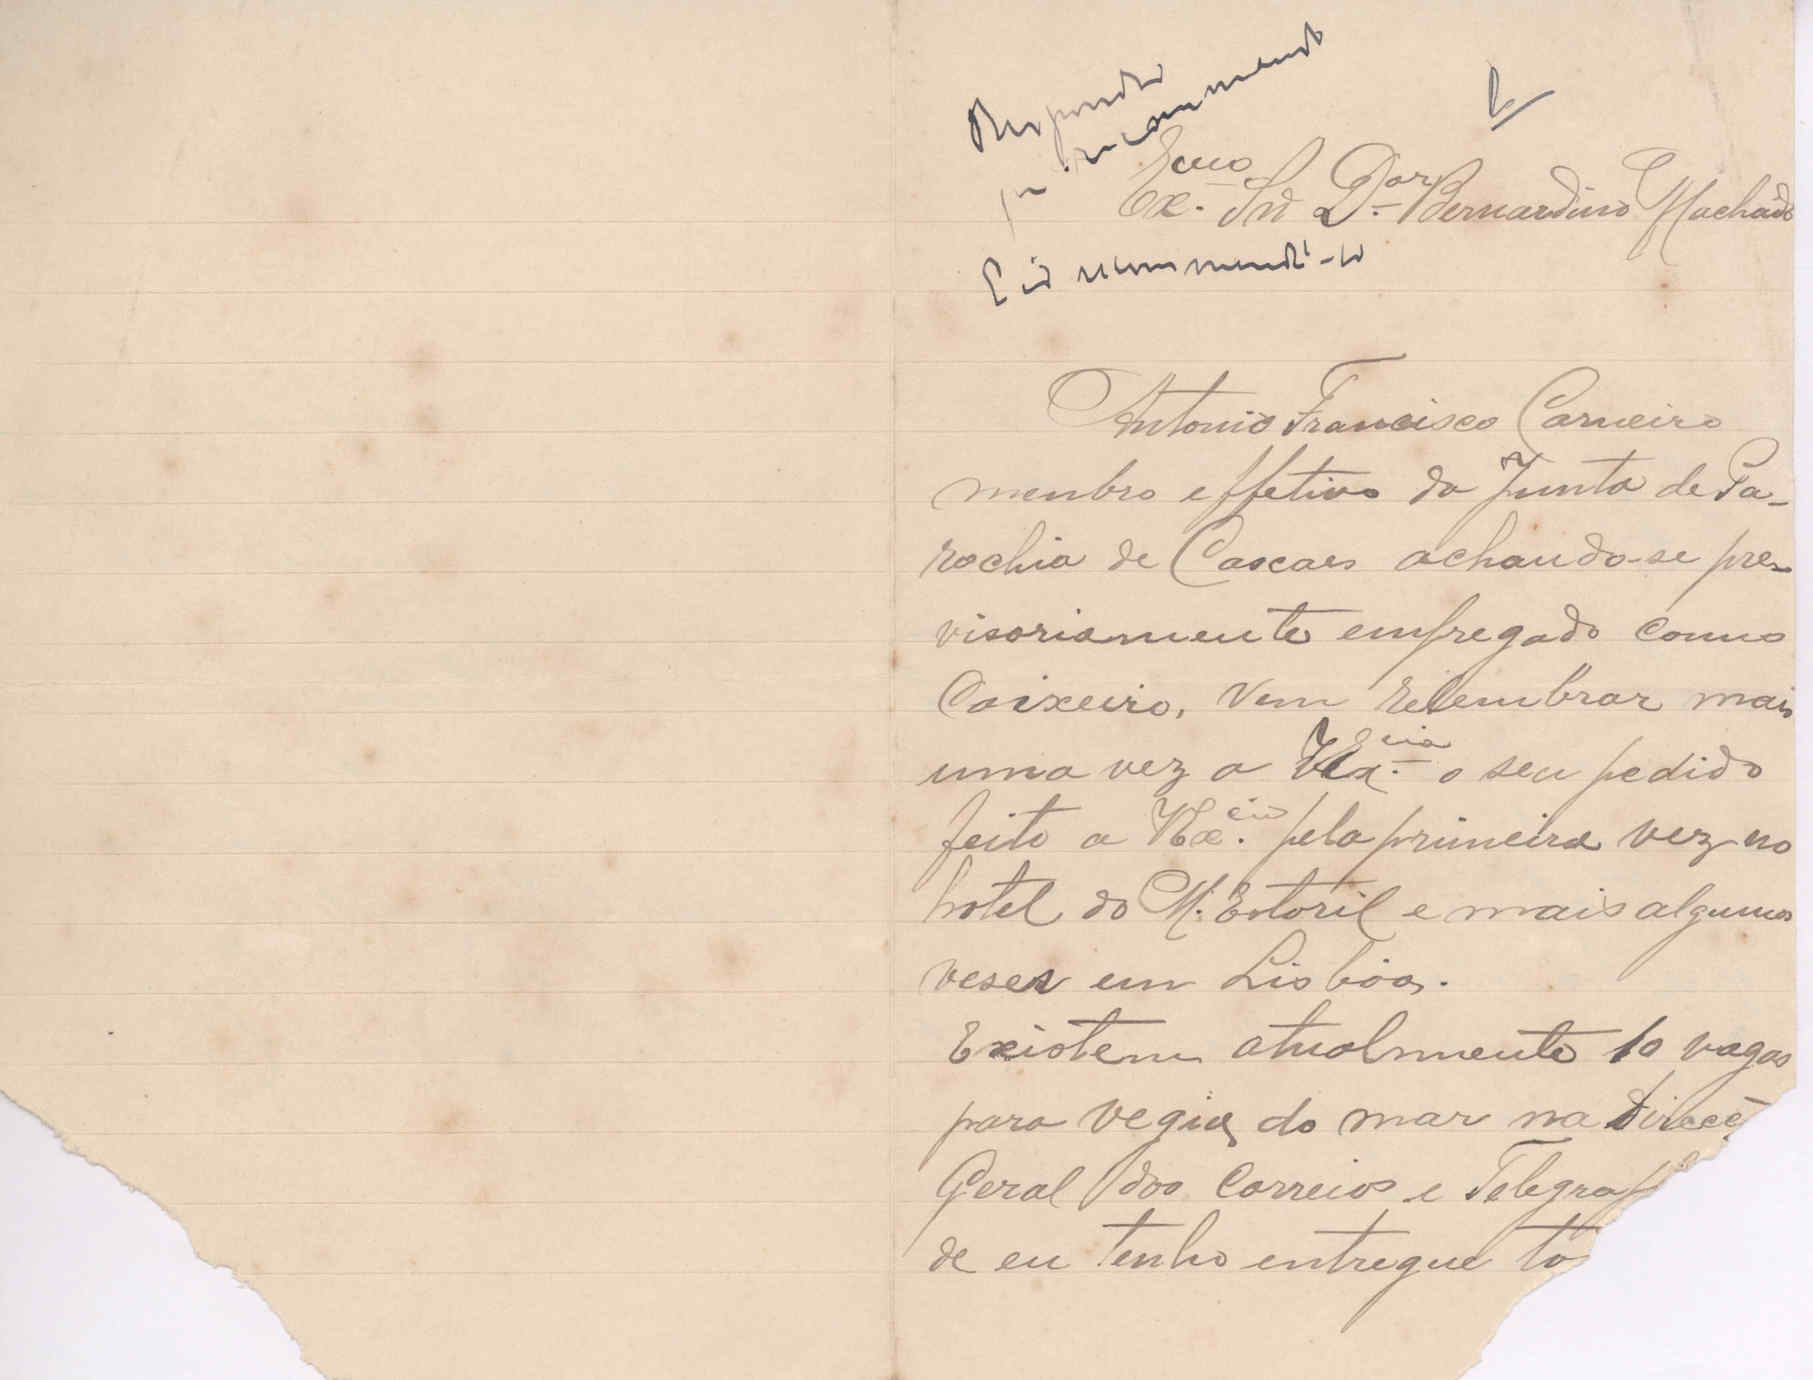 Responder
recommendo
Ex.mo Snr Dor Bernardino Machado
recommendá-lo
Antonio Francisco Carneiro
menbro effetivo da Junta de Pa-
rochia de Cascaes achando-se pre-
visoriamente empregado como
Caixeiro, vem relembrar mais
uma vez a VEx.cia o seu pedido
feito a VEx.cia pela primeira vez no
hotel do M. Estoril e mais algumas
veses em Lisbôa.
Existem atualmente 10 vagas
para vegias do mar na Direcç
Geral dos Correios e Telegrap
de eu tenho entregue to